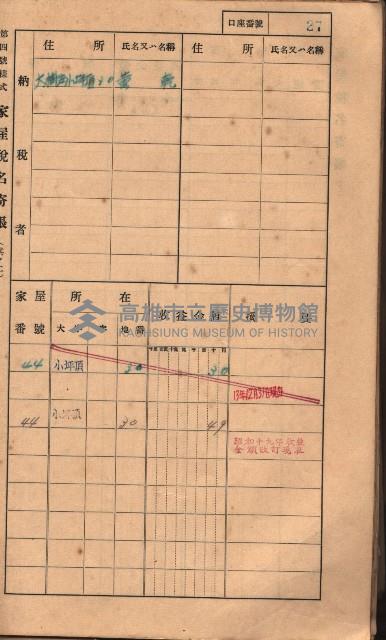 口座番號 27
第四號樣式 家屋稅名寄帳
納稅者
住所 氏名又ハ名稱 住所 氏名又ハ名稱
大樹庄小坪頂30
家屋番號 所在 大字 地番 收益金額 摘要
高雄市立歷史博物館
KAOHSIUNG MUSEUM OF HISTORY
44 小坪頂 30 30
13年12月31日現在
44 小坪頂 30 49
昭和十九年收益
金額改訂現在